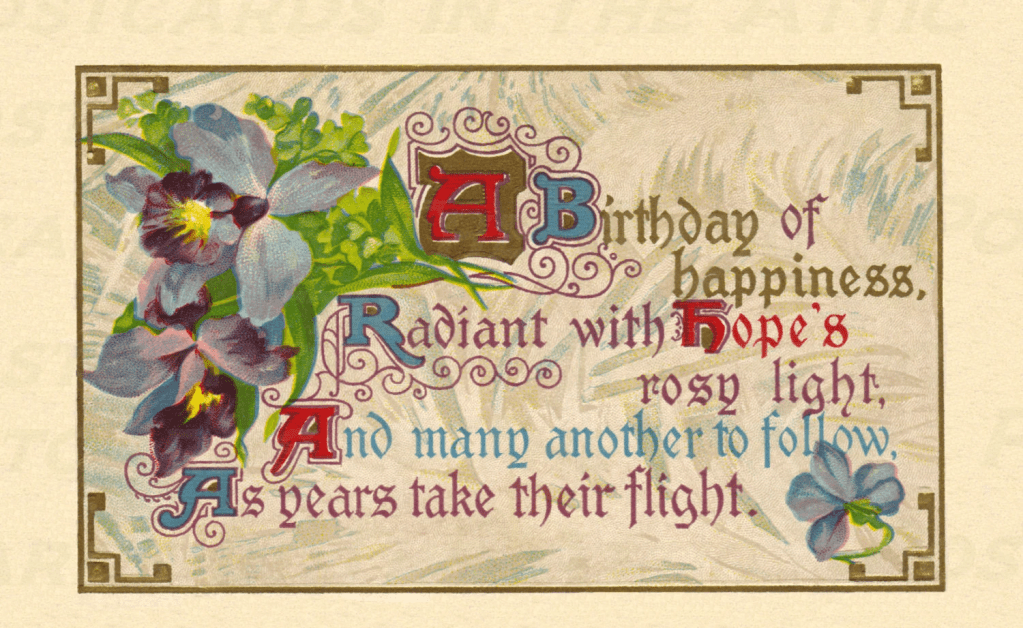 POSTCARDS IN THE ATTIC
A Birthday of
happiness,
Radiant with Hope's
rosy light,
And many another to follow,
As years take their flight.